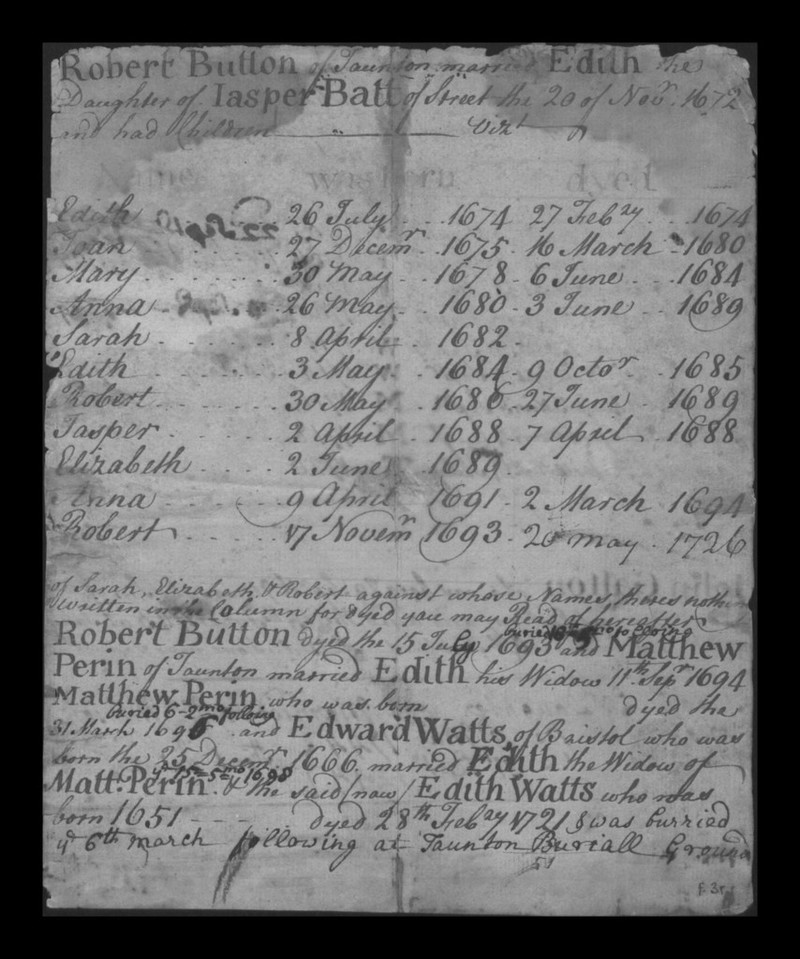 Robert Button of Taunton married Edith the
Daughter of Iasper Batt of Street the 20 of Novr. 1672
and had Children Vizt
Names was born dyed
Edith 26 July 1674 27 Febry 1674
Joan 27 Decemr 1675 16 March 1680
Mary 30 May 1678 6 June 1684
Anna 26 May 1680 3 June 1689
Sarah 8 April 1682
Edith 3 May 1684 9 Octor 1685
Robert 30 May 1686 27 June 1689
Jasper 2 April 1688 7 April 1688
Elizabeth 2 June 1689
Anna 9 April 1691 2 March 1694
Robert 17 Novemr 1693 20 may 1726
of Sarah, Elizabeth, & Robert against whose Names theres nothin
written in the Column for dyed you may Read of hereafter
buried
Robert Button dyed the 15 July 1693 and Matthew
Perin of Taunton married Edith his Widow 11th Sepr 1694
Matthew Perin who was born dyed the
buried 6-2mo following
31 March 1696 and Edward Watts of Bristol who was
born the 25 Decemr 1666 married Edith the Widow of
ye 15-5mo 1698
Matt: Perin & the said now Edith Watts who was
born 1651 dyed 28th Febry 1721 & was burried
ye 6th march following at Taunton Buriall Ground
f. 3r